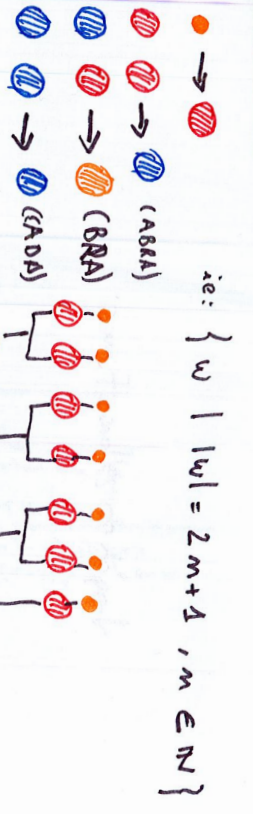 ie: { w | |w| = 2n+1, n ∈ ℕ }
(ABRA)
(BRA)
(CADA)